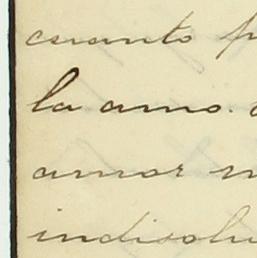 cuanto
la amo.
amor
indisolu